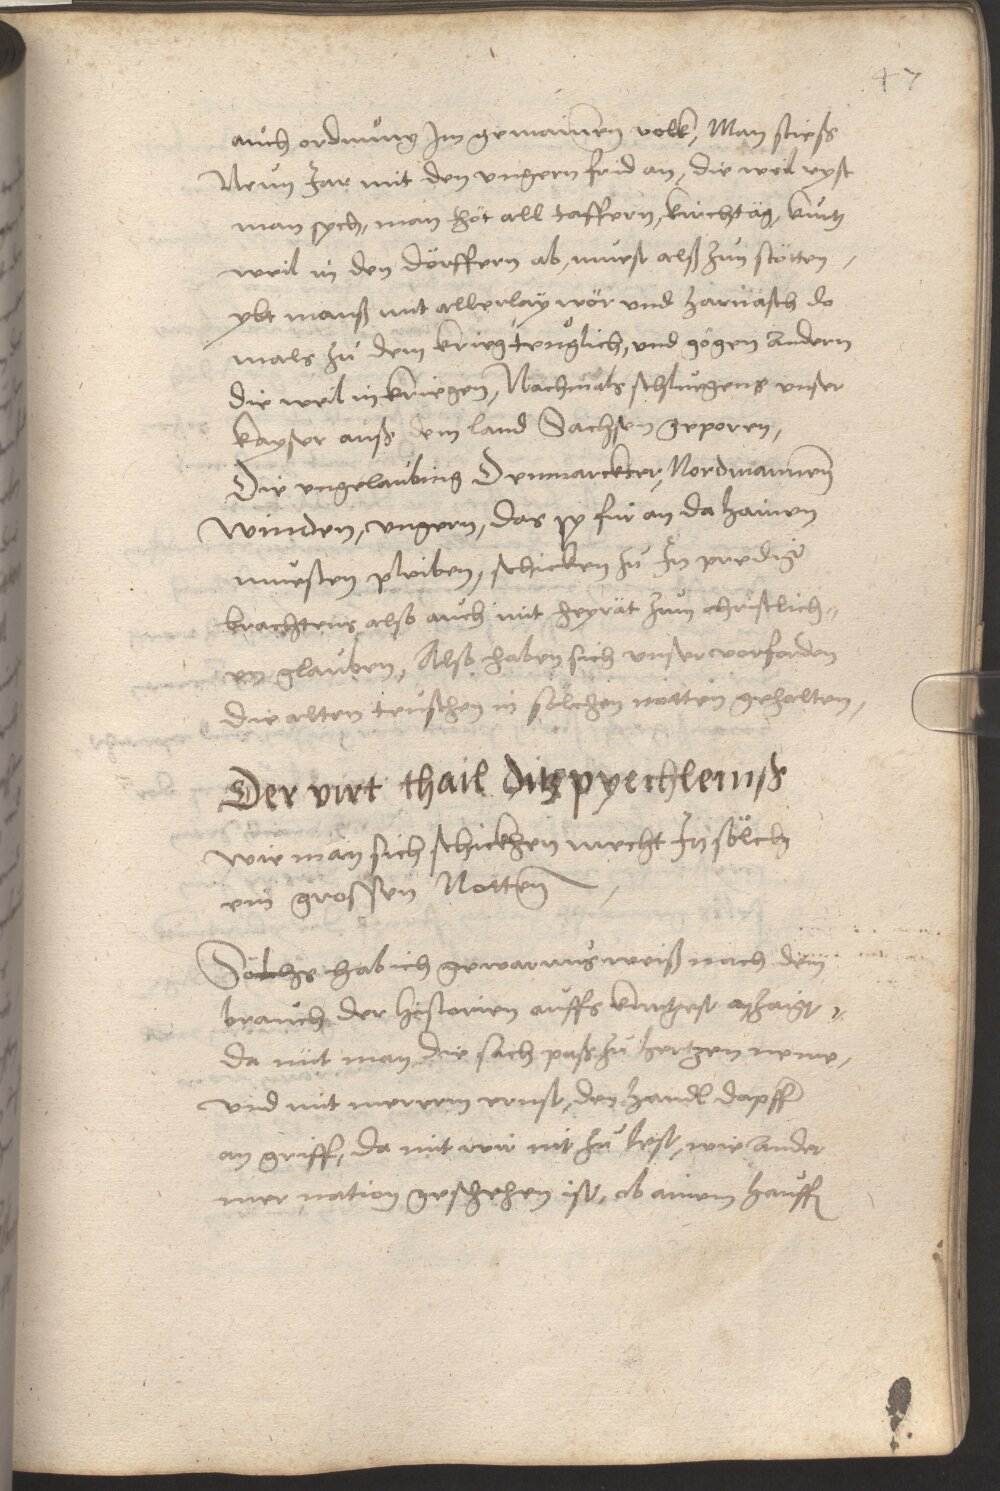 47
auch ordnung Im gemainen volk, Man stiess
Neun Jar mit den vngern frid an, die weil ryst
man sych, man höt all taffern, kirchtäg, kurtz
weil in den dörffern ab, muest alß zun stötten,
ybt mans mit allerlay wör vnd harnasch do
mals zu dem krieg teuglich, vnd gögen andern
die weil in kriegen, Nachmals schluegens vnser
kayser auß dem land Sachsen geporen,
Die vngelaubing Denmarckter, Nordmannen
winden, vngern, das sy für an da haimen
muesten pleiben, schicken zu In prediger
brachtens also auch mit heyrät zum christlich-
en glauben, Also haben sich vnser vorforden
die alten teutschen in sölchen notten gehalten,
Der virt thail ditz pyechleins
wie man sich schickhen mecht In sölch
en grossen Notten,
Sölchs hab ich gewarnus weiß nach dem
brauch der historien auffs kurtzest anzaigt,
da mit man die sach paß zu hertzen neme,
vnd mit merrem ernst, den handl dapffer
an griff, da mit wir nit zu lest, wie ander
mer nation geschehen ist, ob ainem hauffen